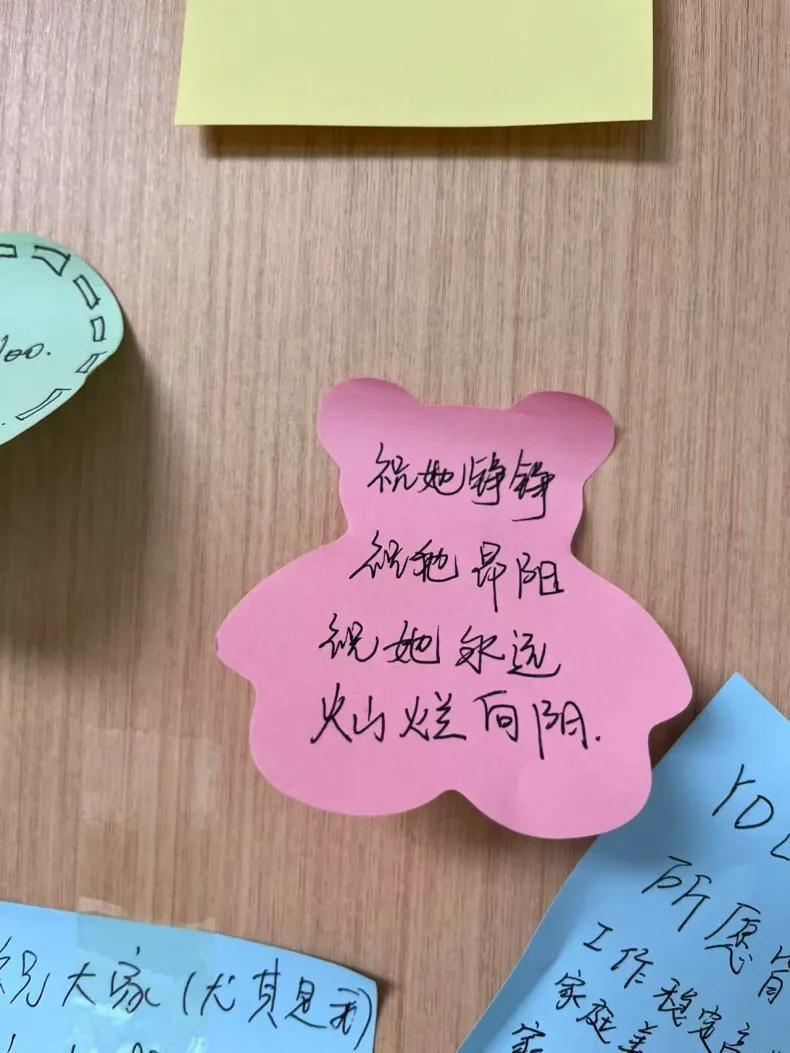 100.
祝她铮铮
祝她昂阳
祝她永远
灿烂向阳.
祝大家(尤其是我)
所愿皆
工作稳定高
家庭美
家